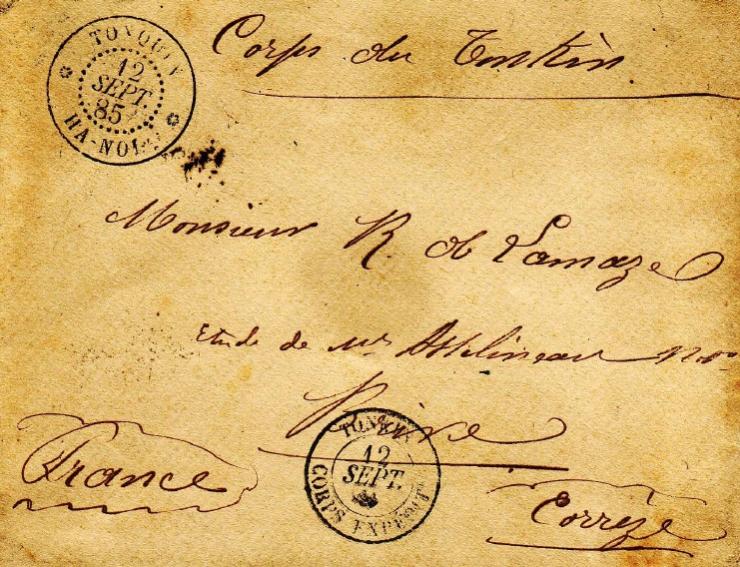 Corps du Tonkin
TONQUIN
12
SEPT.
85
HA-NOI
Monsieur R. de Lamaze
Etude de Me
Brive
TONKIN
12
SEPT.
CORPS EXPEDIT
France
Corrèze